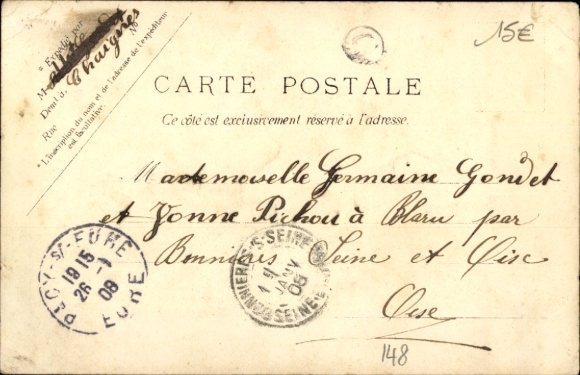 * Expédié par
M
Demt à Chaignes
Rue No
* L'inscription du nom et de l'adresse de l'expéditeur
est facultative.
15€
CARTE POSTALE
Ce côté est exclusivement réservé à l'adresse.
Mademoiselle Germaine Gondet
et Yvonne Pichou à Blaru par
Bonnières Seine et Oise
Oise
PACY-S-EURE
19 15
26 -1
08
EURE
BONNIERES-S-SEINE
JANV
08
148